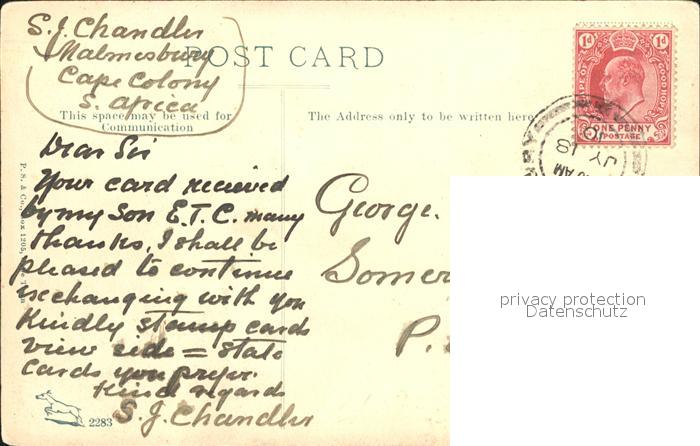 S. J. Chandler
Malmesbury
Cape Colony
S. Africa
POST CARD
This space may be used for
Communication
The Address only to be written here
1d 1d
CAPE OF GOOD HOPE
ONE PENNY
POSTAGE
AM
JY 18
10
Dear Sir
Your card recieved
by my Son E.T.C. many
thanks, I shall be
pleased to continue
exchanging with you
Kindly stamp cards
view side = State
cards you prefer.
Kind regards
S. J. Chandler
George.
Somer
P.
P. S. & Co., Box 1205,
2283
privacy protection
Datenschutz